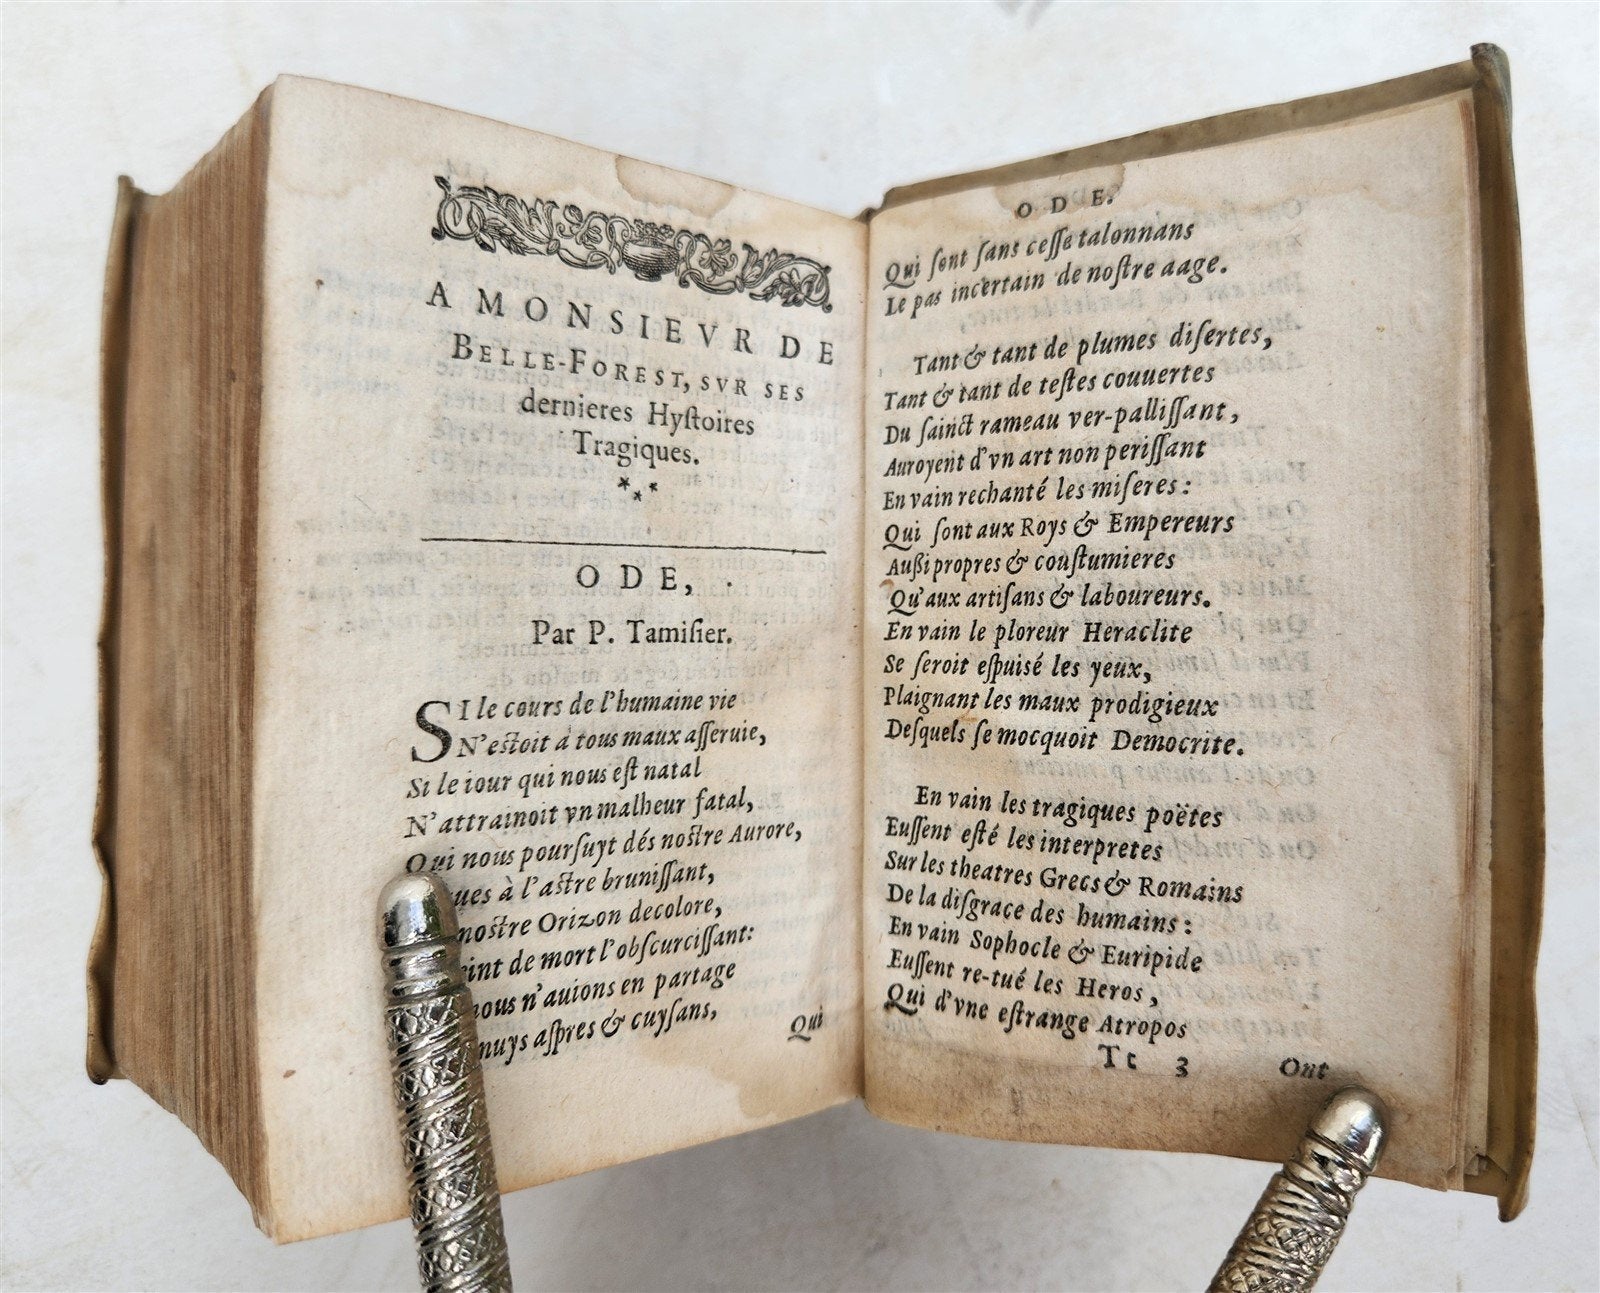 A MONSIEVR DE
BELLE-FOREST, SVR SES
dernieres Hyſtoires
Tragiques.
***
ODE,
Par P. Tamiſier.
SI le cours de l'humaine vie
N'eſtoit à tous maux aſſeruie,
Si le iour qui nous eſt natal
N'attrainoit vn malheur fatal,
Qui nous pourſuyt dés noſtre Aurore,
à l'aſtre bruniſſant,
noſtre Orizon decolore,
de mort l'obſcurciſſant:
nous n'auions en partage
aſpres & cuyſans,
Qui
ODE.
Qui ſont ſans ceſſe talonnans
Le pas incertain de noſtre aage.
Tant & tant de plumes diſertes,
Tant & tant de teſtes couuertes
Du ſainct rameau ver-palliſſant,
Auroyent d'vn art non periſſant
En vain rechanté les miſeres:
Qui ſont aux Roys & Empereurs
Auſſi propres & couſtumieres
Qu'aux artiſans & laboureurs.
En vain le ploreur Heraclite
Se ſeroit eſpuisé les yeux,
Plaignant les maux prodigieux
Deſquels ſe mocquoit Democrite.
En vain les tragiques poëtes
Euſſent eſté les interpretes
Sur les theatres Grecs & Romains
De la diſgrace des humains:
En vain Sophocle & Euripide
Euſſent re-tué les Heros,
Qui d'vne eſtrange Atropos
Tt 3 Ont